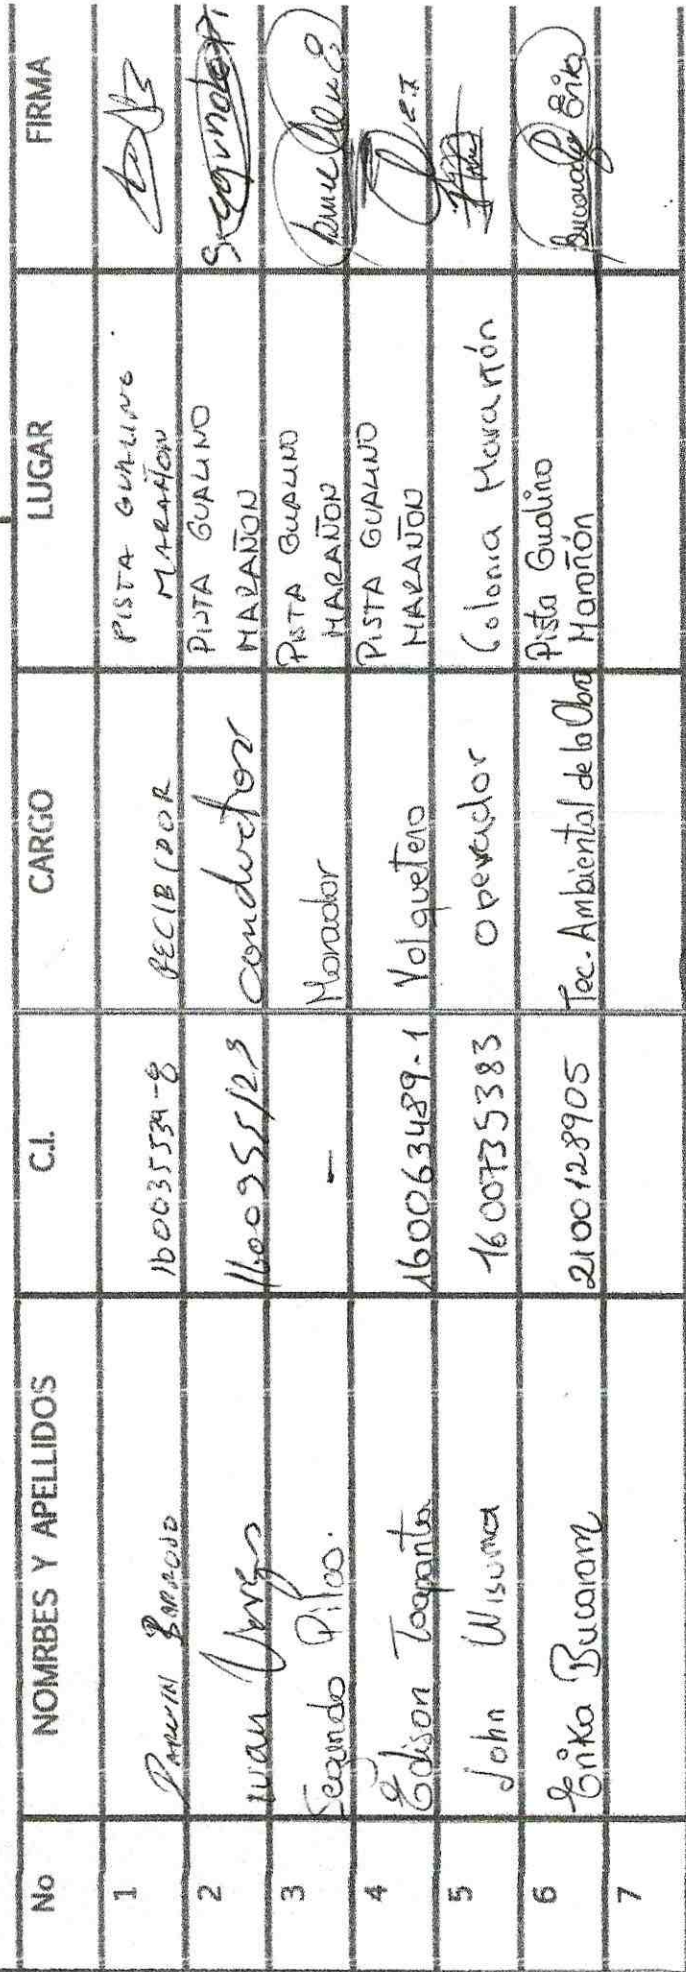 No NOMRBES Y APELLIDOS C.I. CARGO LUGAR FIRMA
1 Darwin Barroso 160035534-8 RECIBIDOR PISTA GUALINO
MARAÑON
2 Ivan Vargas conductor PISTA GUALINO
MARAÑON
3 Segundo Pilco. - Morador PISTA GUALINO
MARAÑON
4 Edison Toapanta 160063489-1 Volquetero PISTA GUALINO
MARAÑON
5 John Wisuma 1600735383 operador Colonia Marañón
6 Erika Bucaram 2100128905 Tec. Ambiental de la Obra Pista Gualino
Marañón
Bucaram Erika
7